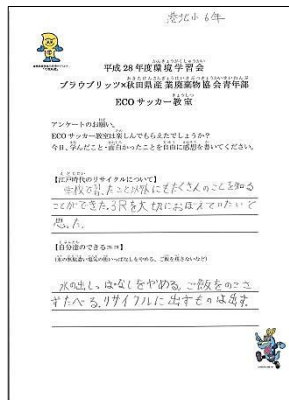 港北小 6年
平成28年度環境学習会
ブラウブリッツ×秋田県産業廃棄物協会青年部
ECOサッカー教室
アンケートのお願い。
ECOサッカー教室は楽しんでもらえたでしょうか?
今日、学んだこと・面白かったことを自由に感想を書いてください。
【江戸時代のリサイクルについて】
学校で習ったこと以外にもたくさんのことを知る
ことができた。3Rを大切におぼえていたいと
思った。
【自分達のできる】
水の出しっぱなしをやめる。ご飯をのこさ
ずたべる。リサイクルに出すものは出す。